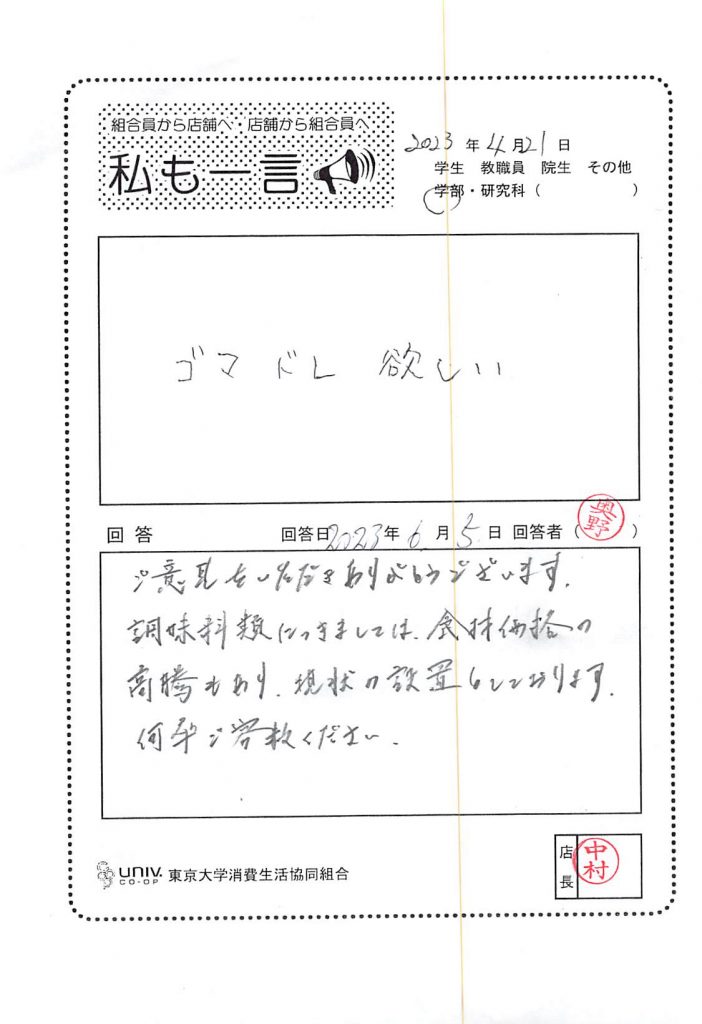 組合員から店舗へ・店舗から組合員へ
私も一言
2023年4月21日
学生 教職員 院生 その他
学部・研究科( )
ゴマドレ 欲しい
回答 回答日2023年6月5日 回答者(奥野)
ご意見をいただきありがとうございます。
調味料類につきましては、食材価格の
高騰もあり、現状の設置としております。
何卒ご容赦ください。
店長 中村
UNIV. CO-OP 東京大学消費生活協同組合